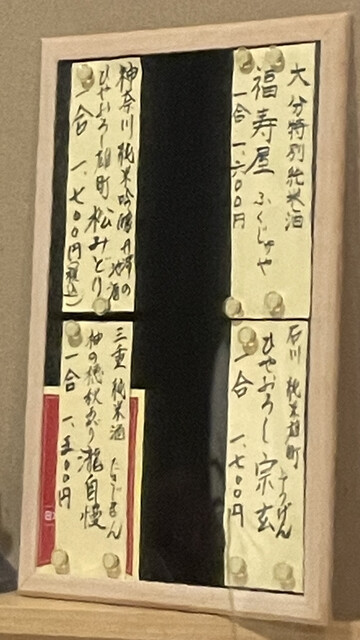 大分特別純米酒
福寿屋 ふくじゅや
一合 一、六〇〇円
石川 純米雄町
ひやおろし 宗玄 そうげん
一合 一、七〇〇円
神奈川 純米吟醸 丹澤の地酒
ひやおろし雄町 松みどり
一合 一、七〇〇円(税込)
三重 純米酒 たきじまん
神の穂秋あがり 瀧自慢
一合 一、五〇〇円